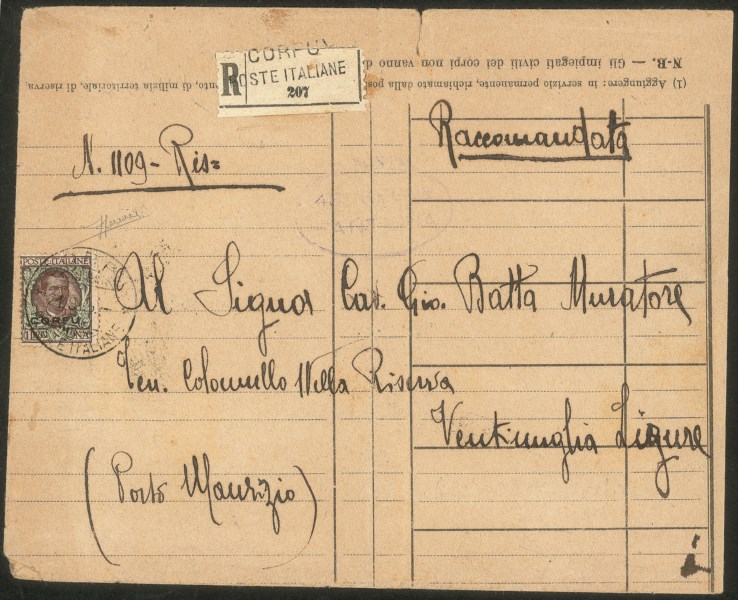 CORFU
R POSTE ITALIANE
207
N-B. — Gli impiegati civili dei corpi non vanno
(1) Aggiungere: in servizio permanente, richiamato dalla pos
nto, di milizia territoriale, di riserva,
Raccomandata
N. 1109 - Ris=
POSTE ITALIANE
CORFÙ
POSTE ITALIANE
Al Signor Cav. Gio. Batta Muratore
Ten. Colonnello nella Riserva
Ventimiglia Ligure
(Porto Maurizio)